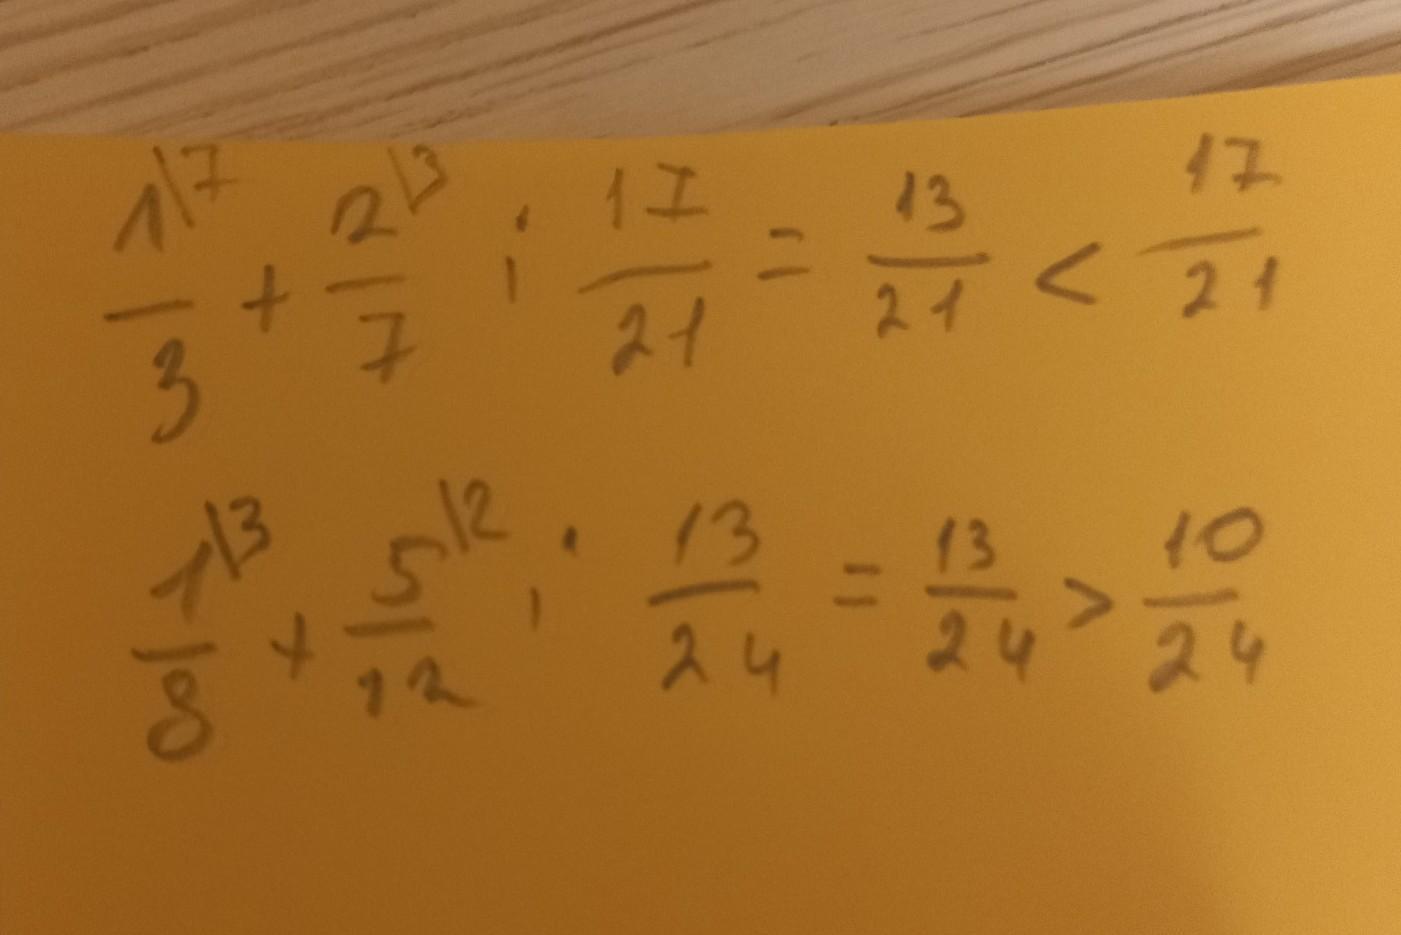 1\7/3 + 2\3/7 ; 17/21 = 13/21 < 17/21
1\3/8 + 5\2/12 ; 13/24 = 13/24 > 10/24